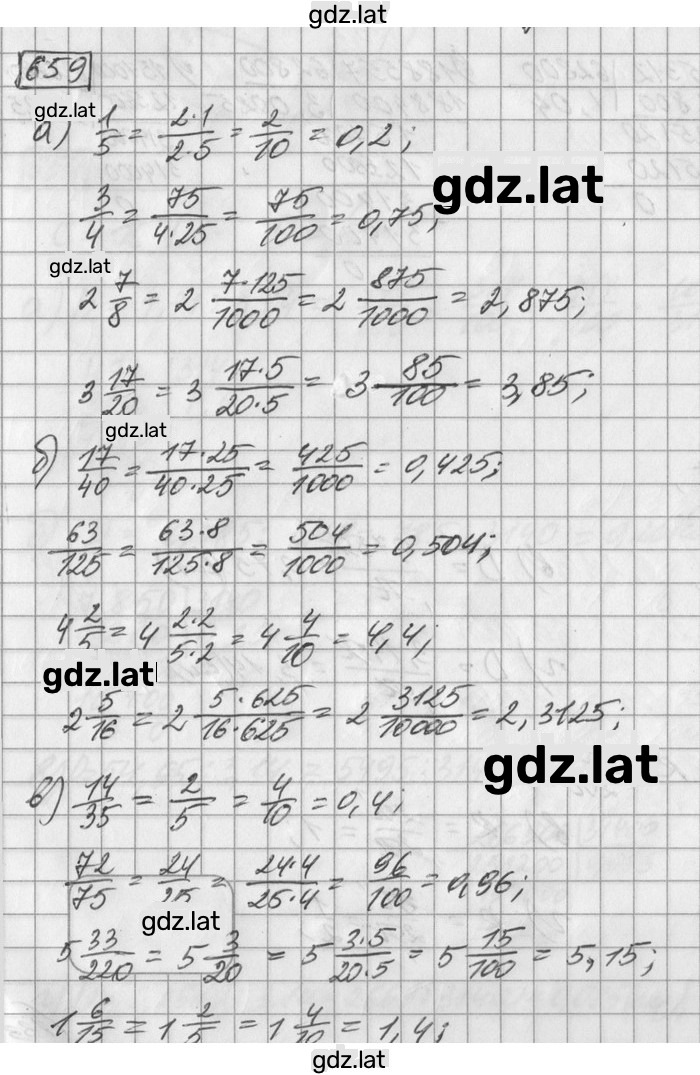 gdz.lat
659
gdz.lat
а) 1/5 = 2·1/2·5 = 2/10 = 0,2;
gdz.lat
3/4 = 75/4·25 = 75/100 = 0,75;
gdz.lat
2 7/8 = 2 7·125/1000 = 2 875/1000 = 2,875;
3 17/20 = 3 17·5/20·5 = 3 85/100 = 3,85;
gdz.lat
б) 17/40 = 17·25/40·25 = 425/1000 = 0,425;
63/125 = 63·8/125·8 = 504/1000 = 0,504;
4 2/5 = 4 2·2/5·2 = 4 4/10 = 4,4;
gdz.lat
2 5/16 = 2 5·625/16·625 = 2 3125/10000 = 2,3125;
gdz.lat
в) 14/35 = 2/5 = 4/10 = 0,4;
72/75 = 24/25 = 24·4/25·4 = 96/100 = 0,96;
gdz.lat
5 33/220 = 5 3/20 = 5 3·5/20·5 = 5 15/100 = 5,15;
1 6/15 = 1 2/5 = 1 4/10 = 1,4;
gdz.lat